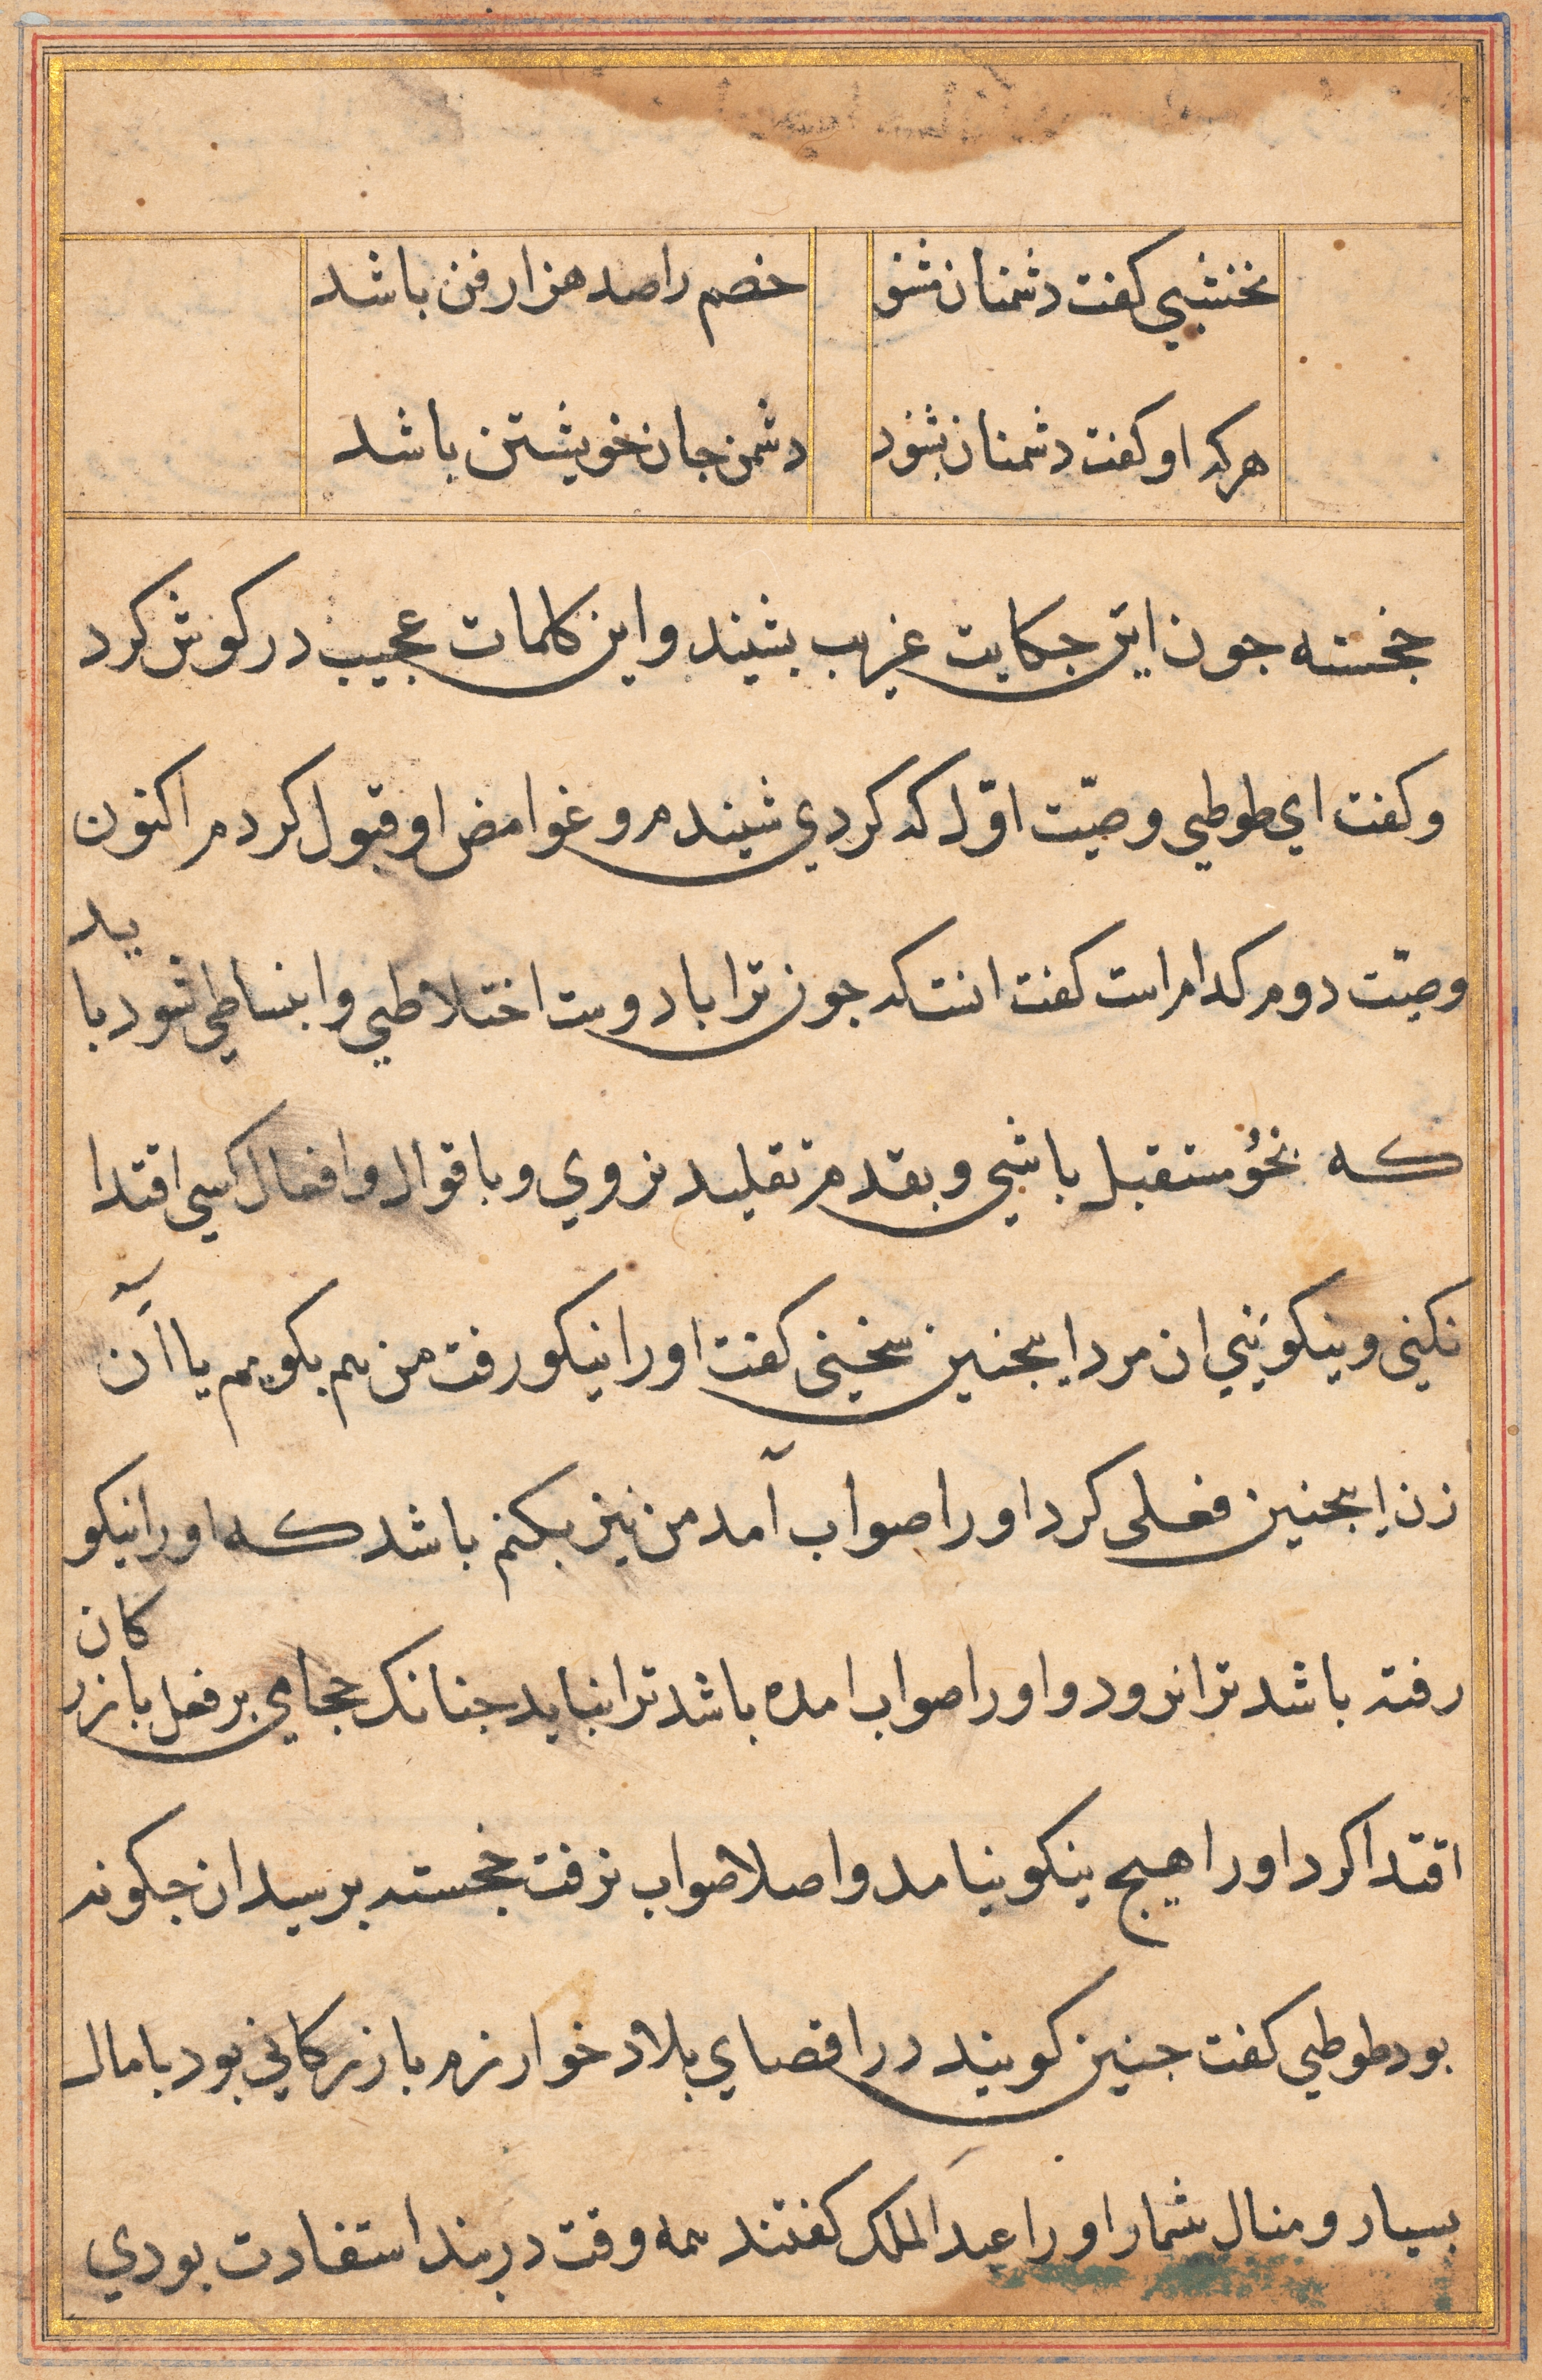 نخشبي کفت دشمنان مشنو خصم را صد هزار فن باشد
هر که او کفت دشمنان بشنود دشمن جان خویشتن باشد
خجسته جون این حکایت غریب بشیند و این کلمات عجیب در کوش کرد
و کفت اي طوطي وصیّت اوّل که کردي شیندم و غوامض او قبول کردم اکنون
وصیّت دوم کدام است کفت انست که جون ترا با دوست اختلاطي و انبساطي شود باید
که بخو مستقبل باشي و بقدم تقلید نروي و باقوال و افعال کسي اقتدا
نکني و نیکو بیني ان مرد اینجنین سخني کفت او را نیکو رفت من هم بکویم یا آن
زن اینجنین فعلی کرد او را صواب آمد من نیز بکنم باشد که او را نیکو
رفته باشد ترا نرود و او را صواب امده باشد ترا نیاید جنانک حجامي بر فعل بازرکان
اقتدا کرد او را هیج نیکو نیامد و اصلا صواب نرفت خجسته برسید ان جکونه
بود طوطي کفت جنین کویند در اقصاي بلاد خوارزم بازرکاني بود با مال
بسیار و منال شمار او را عبد الملک کفتند همه وقت در بند استفادت بودي